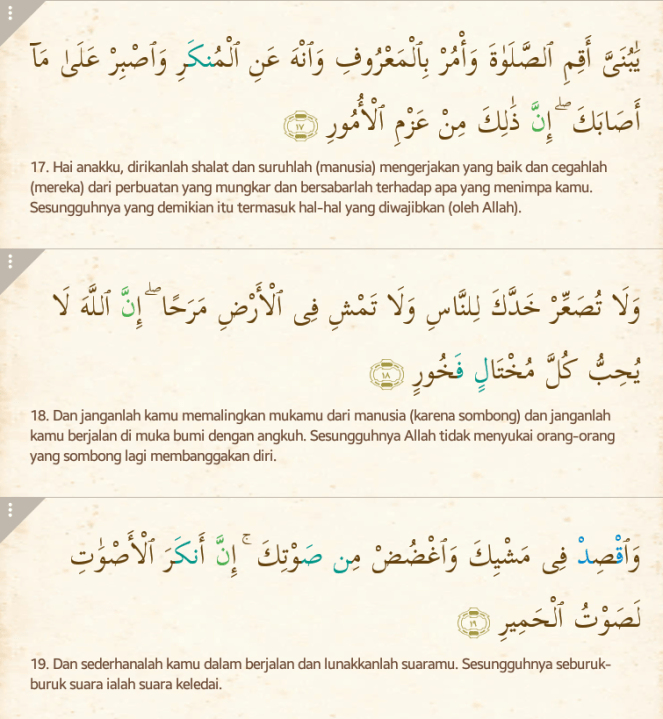 يَٰبُنَىَّ أَقِمِ ٱلصَّلَوٰةَ وَأْمُرْ بِٱلْمَعْرُوفِ وَٱنْهَ عَنِ ٱلْمُنكَرِ وَٱصْبِرْ عَلَىٰ مَآ
أَصَابَكَ ۖ إِنَّ ذَٰلِكَ مِنْ عَزْمِ ٱلْأُمُورِ ١٧
17. Hai anakku, dirikanlah shalat dan suruhlah (manusia) mengerjakan yang baik dan cegahlah
(mereka) dari perbuatan yang mungkar dan bersabarlah terhadap apa yang menimpa kamu.
Sesungguhnya yang demikian itu termasuk hal-hal yang diwajibkan (oleh Allah).
وَلَا تُصَعِّرْ خَدَّكَ لِلنَّاسِ وَلَا تَمْشِ فِى ٱلْأَرْضِ مَرَحًا ۖ إِنَّ ٱللَّهَ لَا
يُحِبُّ كُلَّ مُخْتَالٍ فَخُورٍ ١٨
18. Dan janganlah kamu memalingkan mukamu dari manusia (karena sombong) dan janganlah
kamu berjalan di muka bumi dengan angkuh. Sesungguhnya Allah tidak menyukai orang-orang
yang sombong lagi membanggakan diri.
وَٱقْصِدْ فِى مَشْيِكَ وَٱغْضُضْ مِن صَوْتِكَ ۚ إِنَّ أَنكَرَ ٱلْأَصْوَٰتِ
لَصَوْتُ ٱلْحَمِيرِ ١٩
19. Dan sederhanalah kamu dalam berjalan dan lunakkanlah suaramu. Sesungguhnya seburuk-
buruk suara ialah suara keledai.